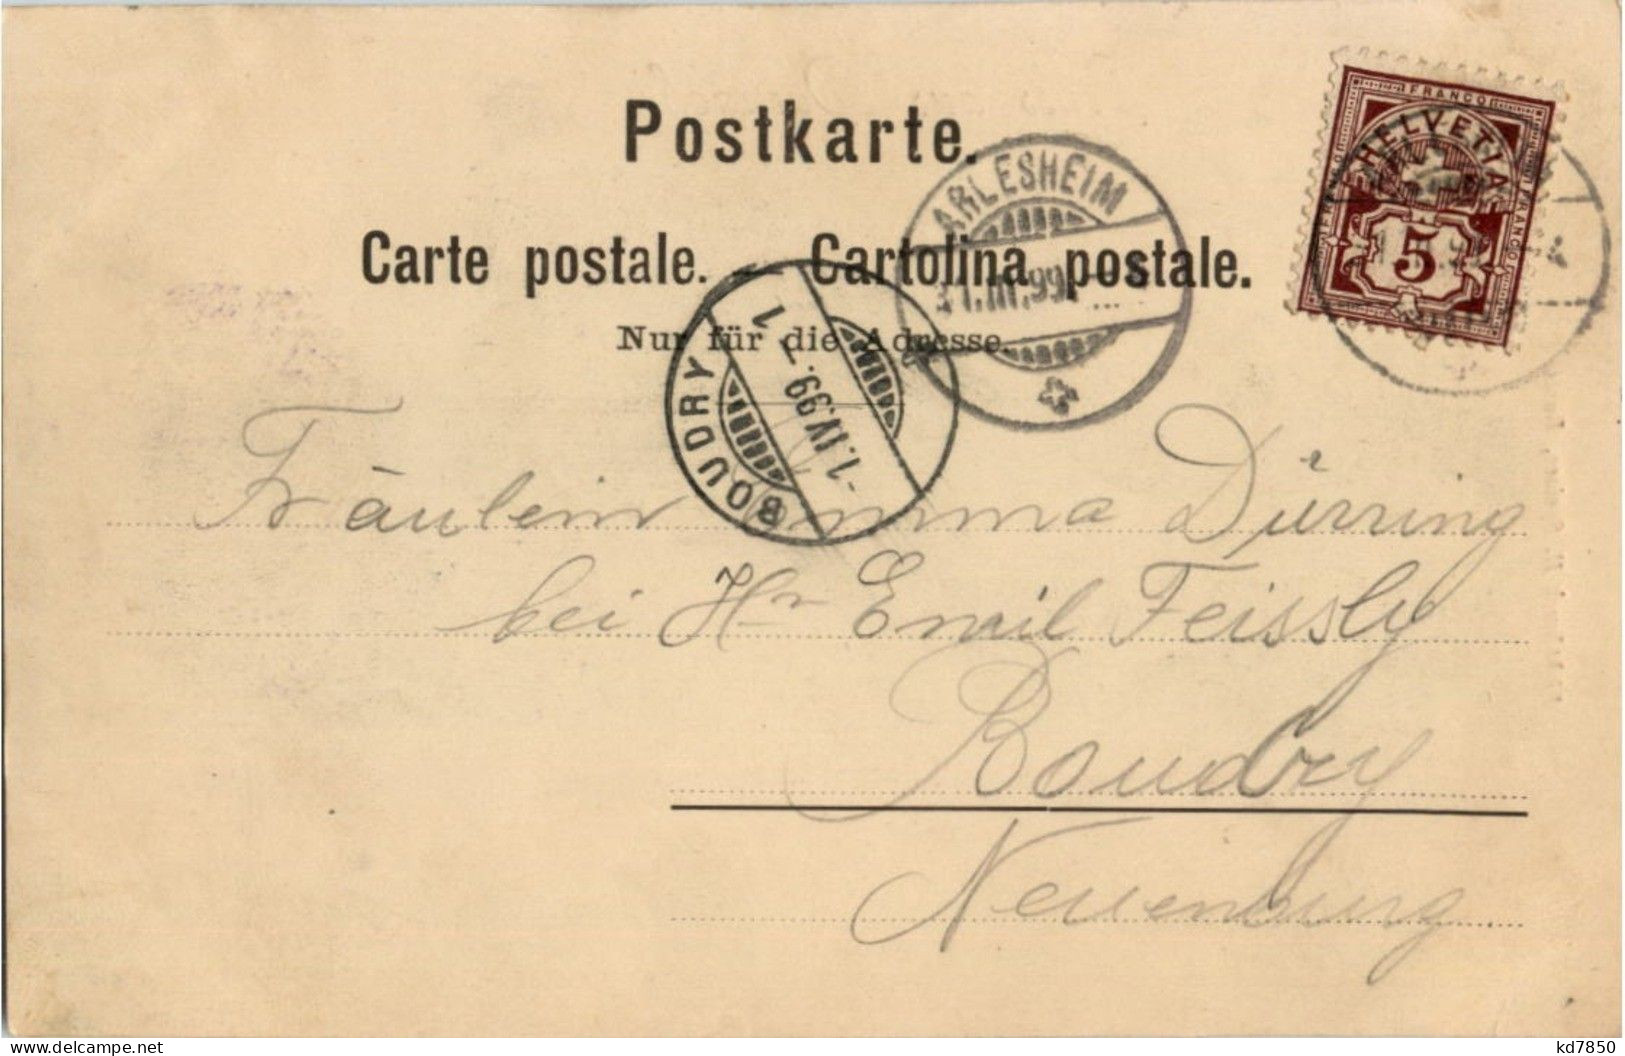 Postkarte.
Carte postale. Cartolina postale.
Nur für die Adresse.
FRANCO
HELVETIA
FRANCO
FRANCO
5
ARLESHEIM
31.III.99
BOUDRY
-1.IV.99. 7
1
Fräulein Emma Dürring
bei Hr Emil Feissly
Boudry
Neuenburg.
www.delcampe.net
kd7850